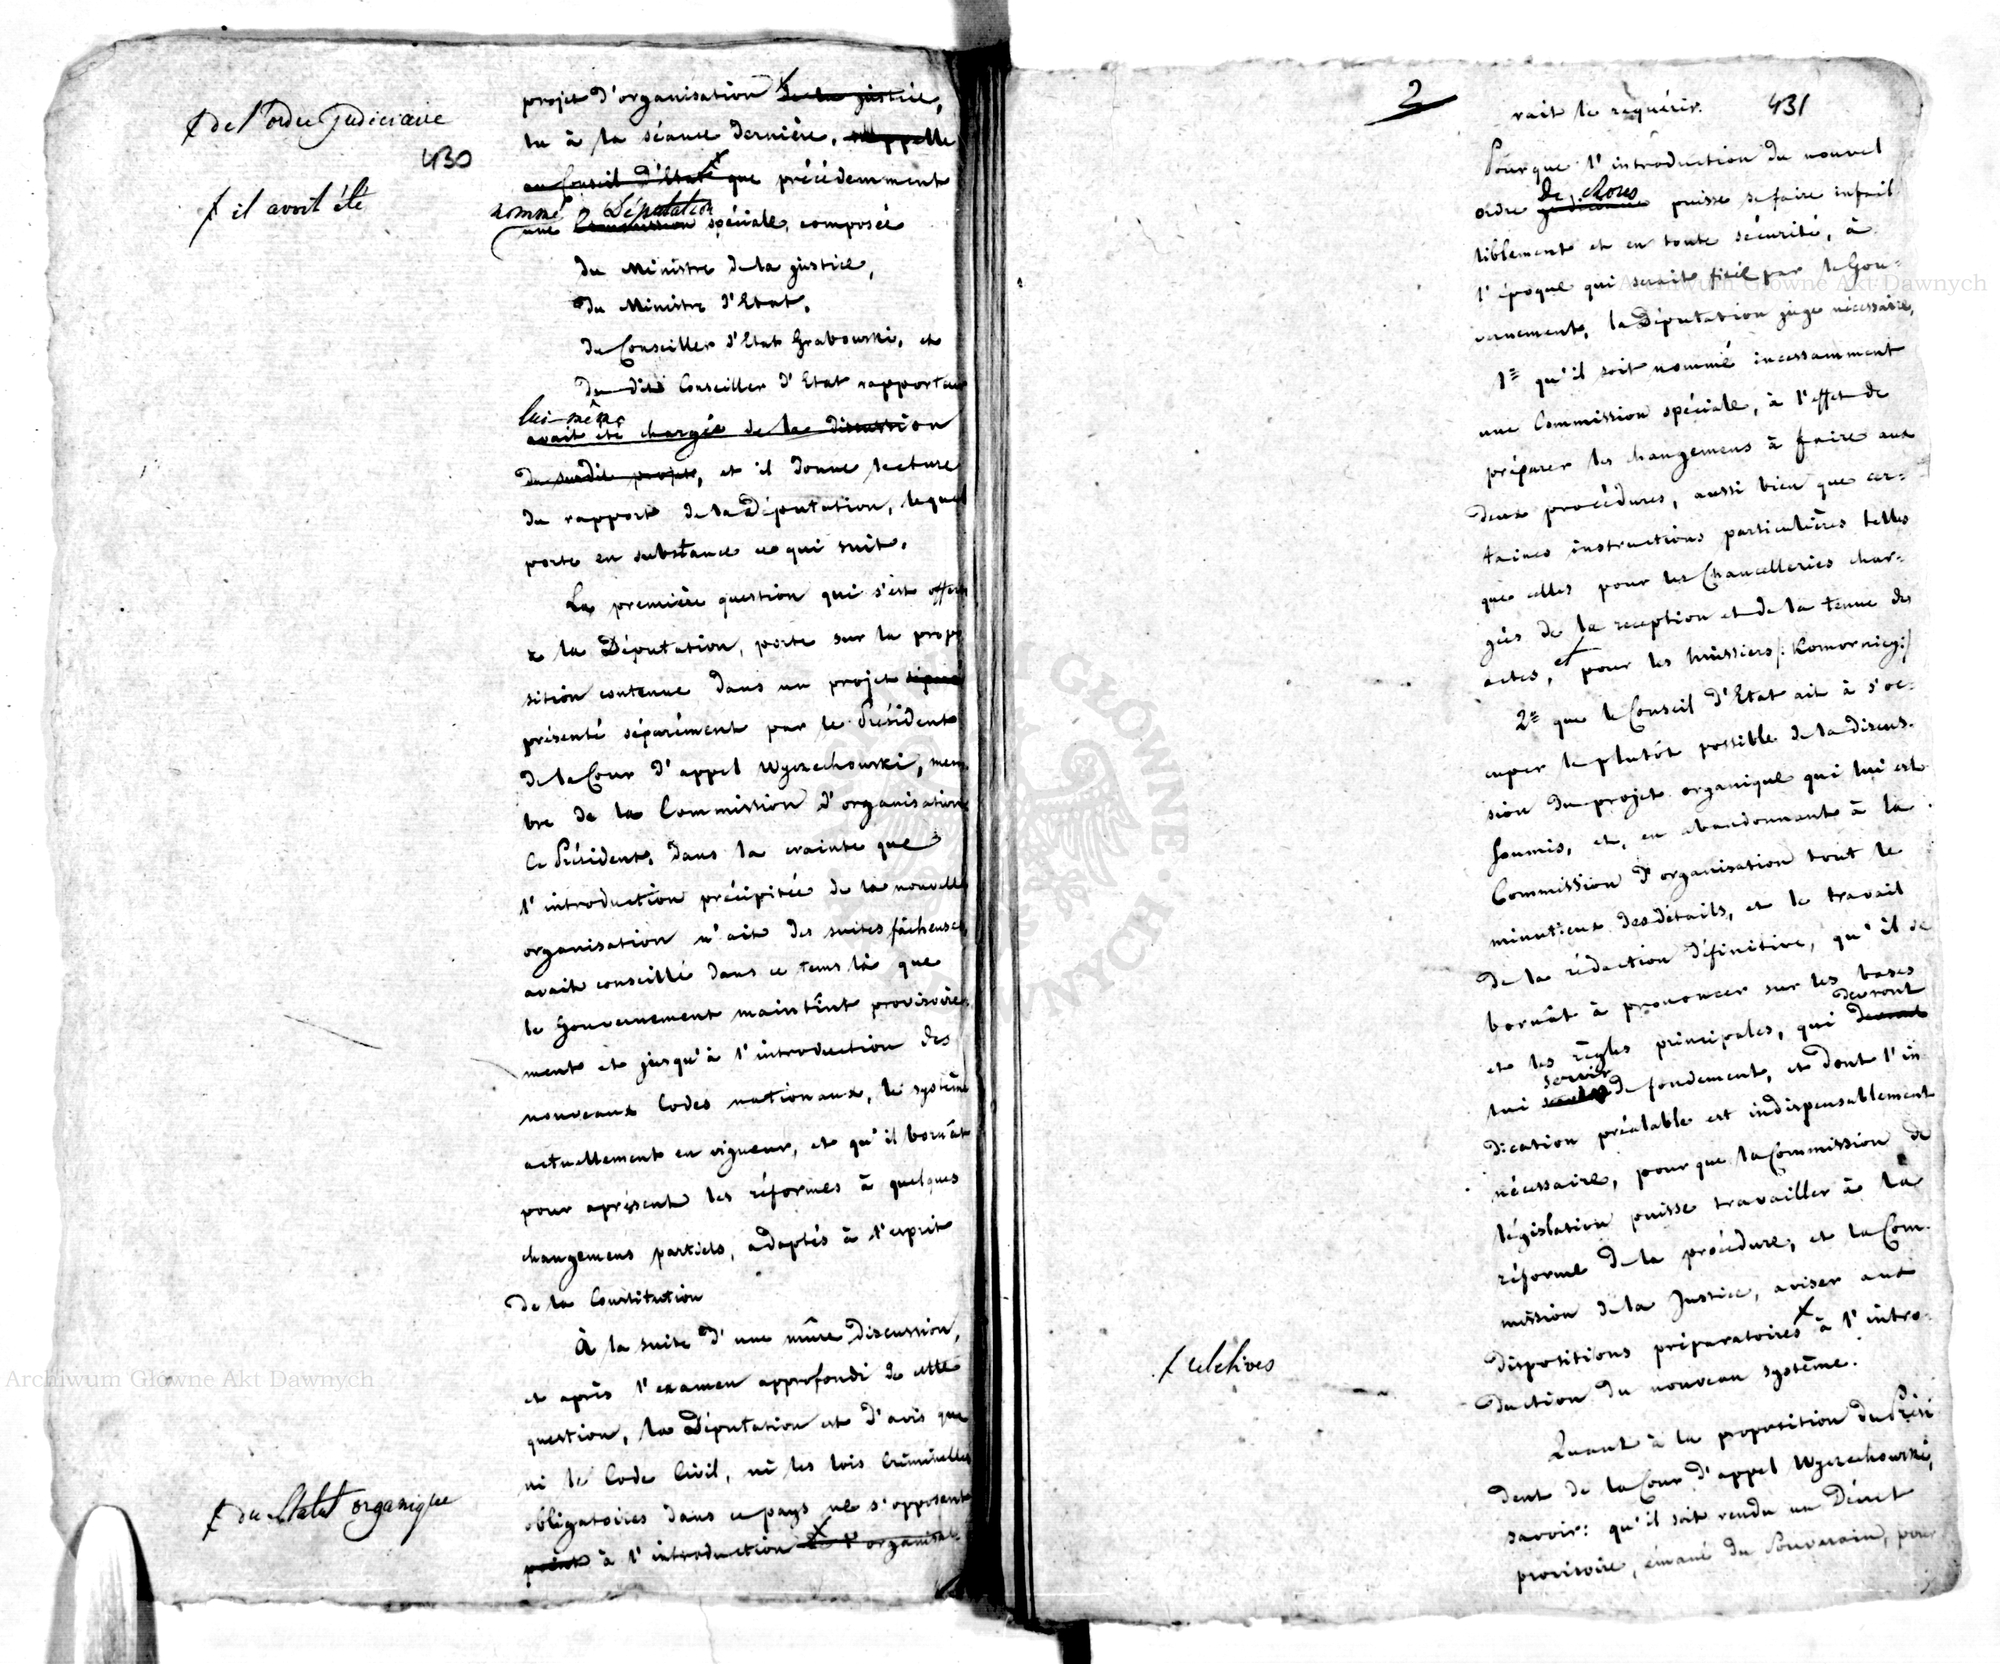 ⨍ de l'ordre judiciaire
430
⨍ il avoit été
projet d'organisation de la justice,
lu à la séance dernière, rappelle
au Conseil d'Etat que précédemment
nommé Députation
une Commission spéciale, composée
du Ministre de la justice,
du Ministre d'Etat,
du Conseiller d'Etat Grabowski, et
du dit Conseiller d'Etat rapporteur
lui-même
avait été chargée de la discussion
du susdit projet, et il donne lecture
du rapport de la Députation, lequel
porte en substance ce qui suit.
La première question qui s'est offerte
à la Députation, porte sur la propo
sition contenue dans un projet séparé
présenté séparément par le Président
de la Cour d'appel Wyczechowski, mem
bre de la Commission d'organisation
Ce Président, dans la crainte que
l'introduction précipitée de la nouvelle
organisation n'ait des suites fâcheuses,
avait conseillé dans ce tems là que
le Gouvernement maintînt provisoire
ment et jusqu'à l'introduction des
nouveaux Codes nationaux, le système
actuellement en vigueur, et qu'il bornât
pour aprésent les réformes à quelques
changemens partiels, adaptés à l'esprit
de la Constitution
À la suite d'une mûre discussion,
et après l'examen approfondi de cette
question, la Députation est d'avis que
ni le Code Civil, ni les lois Criminelles
obligatoires dans ce pays ne s'opposent
point à l'introduction de l'organisat-
⨍ du Statut organique
2
431
rait le requérir.
Pour que l'introduction du nouvel
de choses
ordre judiciaire puisse se faire infail
liblement et en toute sécurité, à
l'époque qui serait fixée par le Gou-
vernement, la Députation juge nécessaire,
1º qu'il soit nommé incessamment
une Commission spéciale, à l'effet de
préparer les changemens à faire aux
deux procédures, aussi bien que cer-
taines instructions particulières telles
que celles pour les Chancelleries char-
gées de la reception et de la tenue des
actes, et pour les huissiers /: Komornicy :/
2º que le Conseil d'Etat ait à s'oc-
cuper le plutôt possible de la discus-
sion du projet organique qui lui est
soumis, et, en abandonnant à la
Commission d'organisation tout le
minutieux des détails, et le travail
de la rédaction définitive, qu'il se
bornât à prononcer sur les bases
devront
et les règles principales, qui
servir
lui de fondement, et dont l'in
dication préalable est indispensablement
nécessaire, pour que la Commission de
législation puisse travailler à la
réforme de la procédure, et la Com-
mission de la Justice, aviser aux
dispositions préparatoires à l'intro-
duction du nouveau système.
⨍ relatives
Quant à la proposition du Prési
dent de la Cour d'appel Wyczechowski,
savoir: qu'il soit rendu un Décret
provisoire, émané du Souverain, pour
Archiwum Główne Akt Dawnych
Archiwum Główne Akt Dawnych